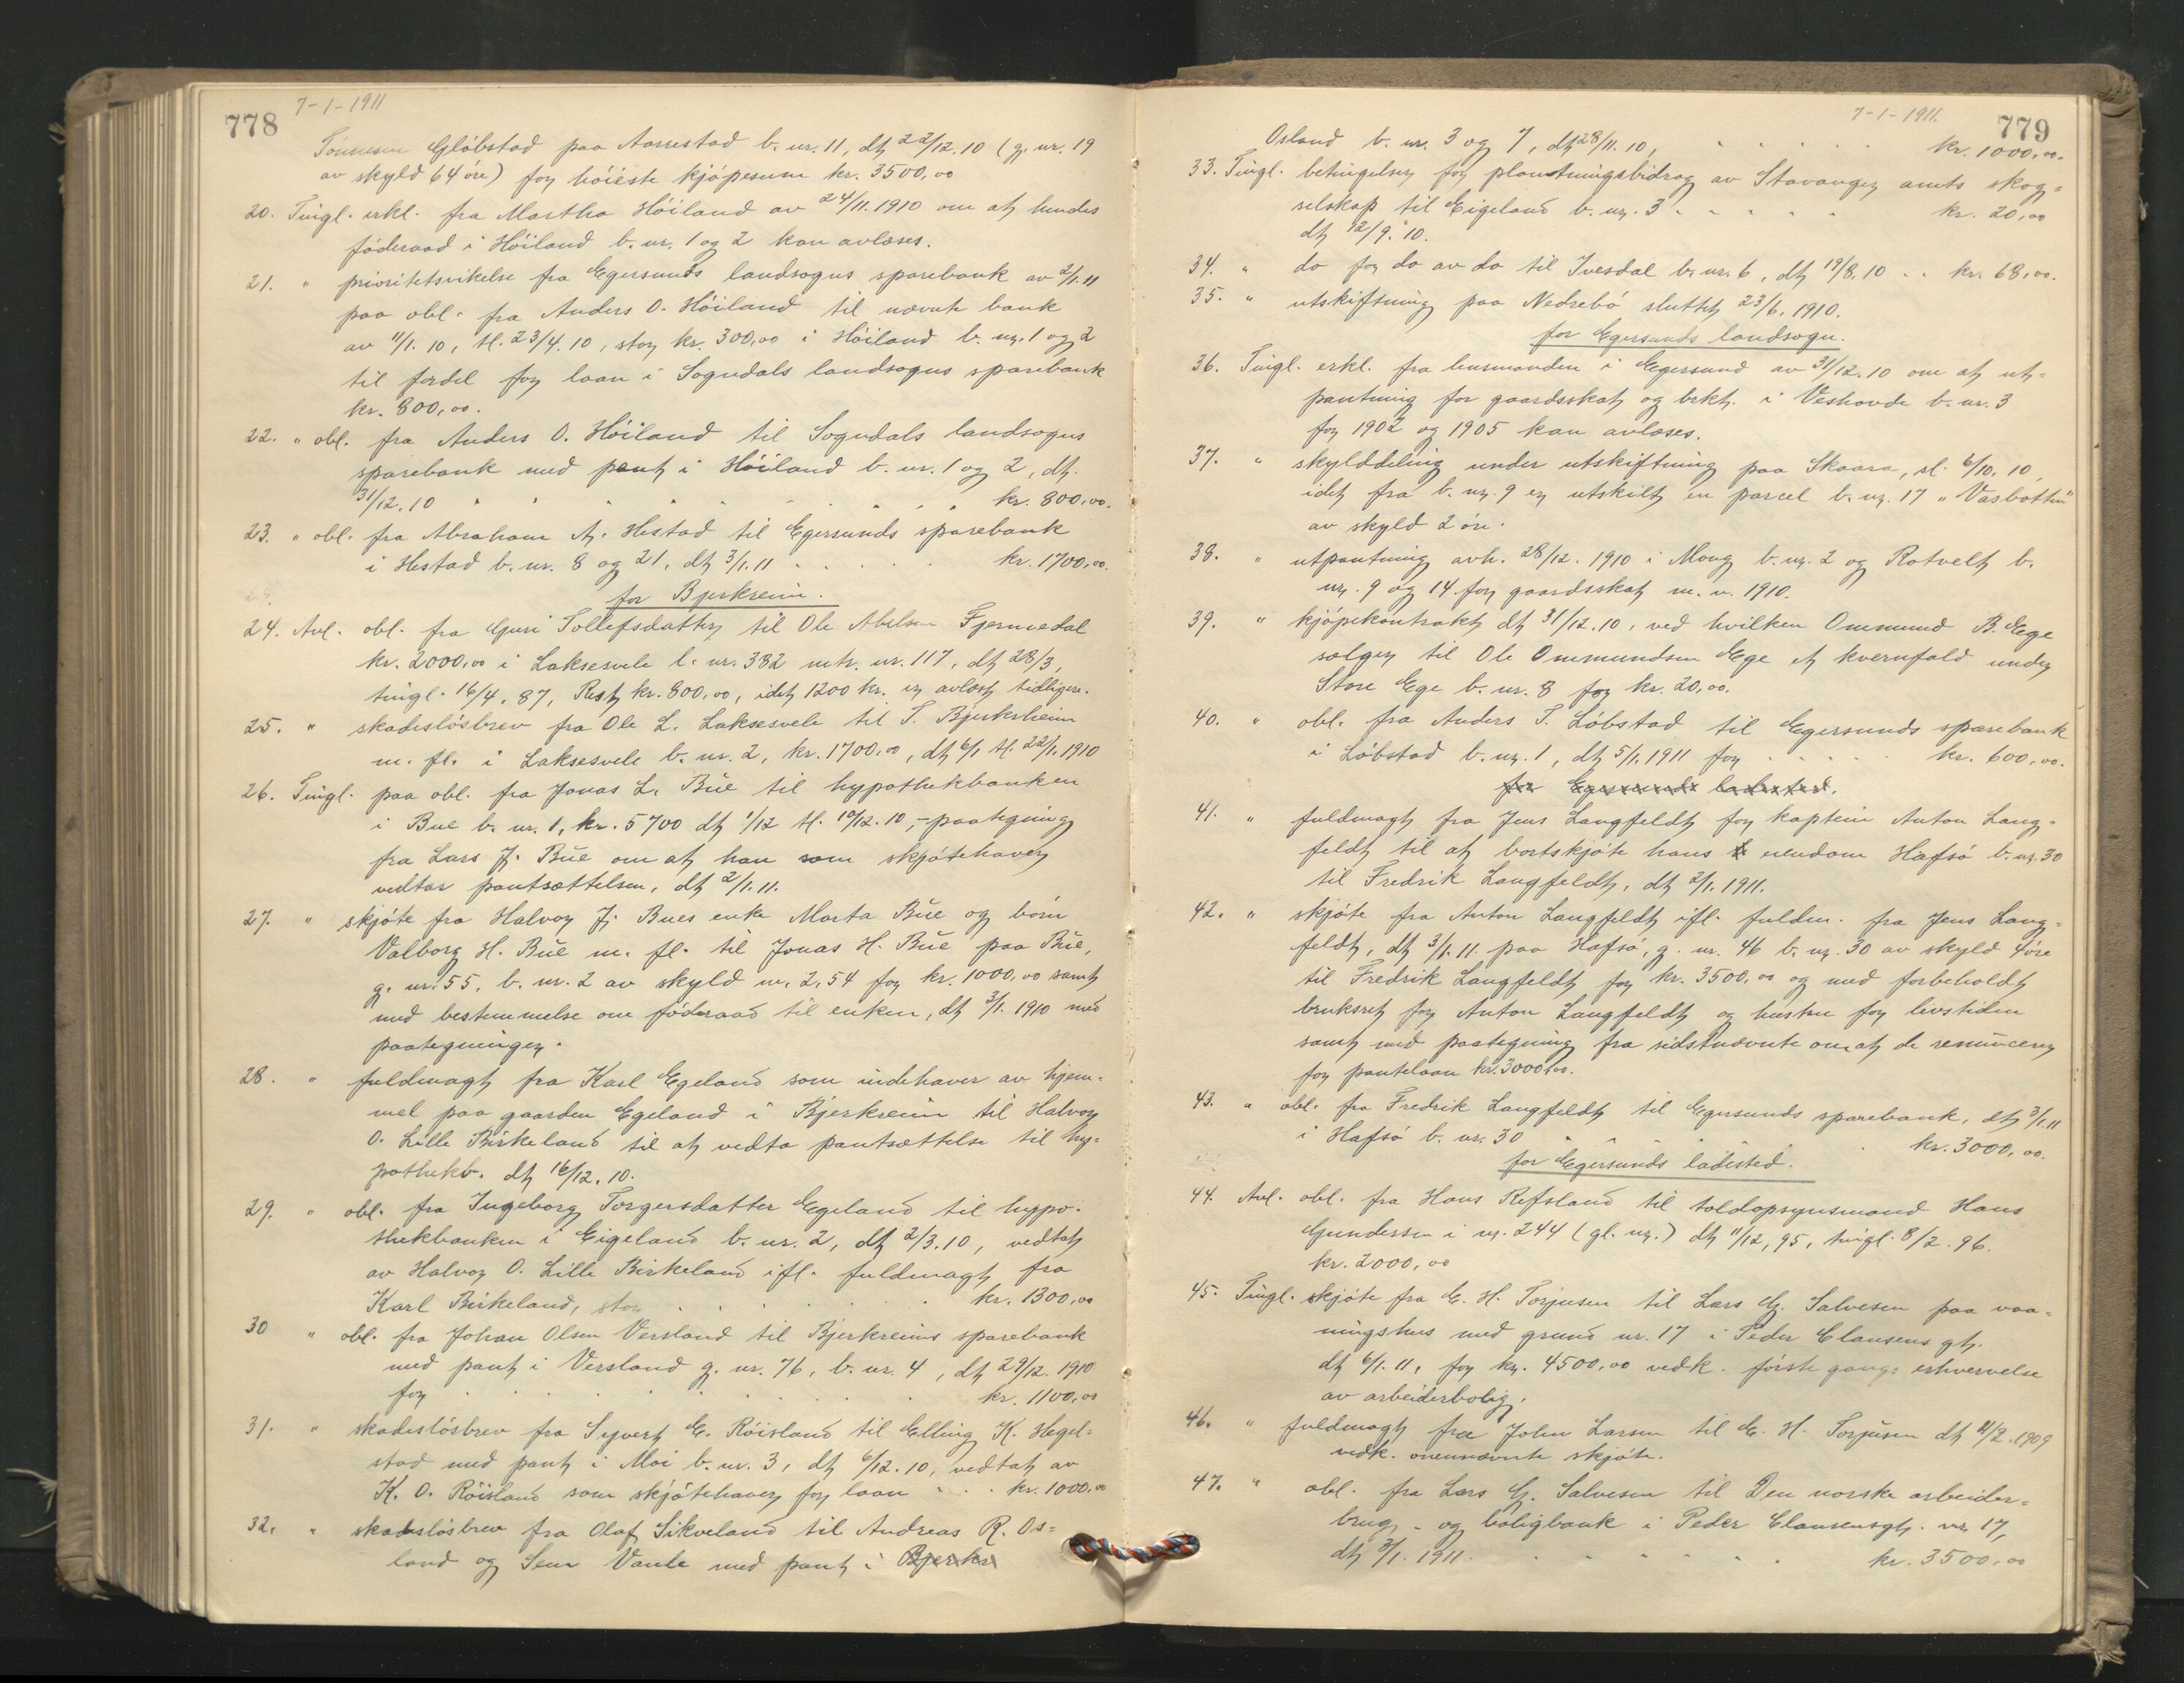 778
7-1-1911
Tönnesen Glöbstad paa Aarrestad b. nr. 11, dt 22/12.10 (g. nr. 19
av skyld 64 öre) for höieste kjöpesum kr. 3500,00
20. Tingl. erkl. fra Martha Höiland av 24/11.1910 om at hendes
föderaad i Höiland b. nr. 1 og 2 kan avlæses.
21. " prioritetsvikelse fra Egersunds landsogns sparebank av 2/1.11
paa obl. fra Anders O. Höiland til nævnte bank
av 11/1.10, tl. 23/4.10, stor kr. 300,00 i Höiland b. nr. 1 og 2
til fordel for laan i Sogndals landsogns sparebank
kr. 800,00.
22. " obl. fra Anders O. Höiland til Sogndals landsogns
sparebank med pant i Höiland b. nr. 1 og 2, dt.
31/12.10 kr. 800,00.
23. " obl. fra Abraham A. Hestad til Egersunds sparebank
i Hestad b. nr. 8 og 21, dt 3/1.11 kr. 1700,00.
for Bjerkreim.
24. Avl. obl. fra Guri Tollefsdatter til Ole Abelsen Fjermedal
kr. 2000,00 i Laksesvele l. nr. 382 mtr. nr. 117, dt 28/3,
tingl. 16/4.87, Rest kr. 800,00, idet 1200 kr. er avlæst tidligere.
25. " skadeslösbrev fra Ole L. Laksesvele til T. Bjerkrheim
m. fl. i Laksesvele b. nr. 2, kr. 1700,00, dt 6/1 tl. 22/1.1910
26. Tingl. paa obl. fra Jonas L. Bue til hypothekbanken
i Bue b. nr. 1, kr. 5700 dt 1/12 tl. 10/12.10, - paategning
fra Lars J. Bue om at han som skjötehaver
vedtar pantsættelsen, dt 2/1.11.
27. " skjöte fra Halvor J. Bues enke Marta Bue og börn
Valborg H. Bue m. fl. til Jonas H. Bue paa Bue,
g. nr. 55. b. nr. 2 av skyld m. 2,54 for kr. 1000,00 samt
med bestemmelse om föderaad til enken, dt 3/1.1910 med
paategninger.
28. " fuldmagt fra Karl Egeland som indehaver av hjem=
mel paa gaarden Egeland i Bjerkreim til Halvor
O. Lille Birkeland til at vedta pantsættelse til hy=
pothekb. dt 16/12.10.
29. " obl. fra Ingeborg Torgersdatter Egeland til hypo-
thekbanken i Eigeland b. nr. 2, dt 2/3.10, vedtat
av Halvor O. Lille Birkeland ifl. fuldmagt fra
Karl Birkeland, stor kr. 1300,00
30 " obl. fra Johan Olsen Versland til Bjerkreims sparebank
med pant i Versland g. nr. 76, b. nr. 4, dt 29/12.1910
for kr. 1100,00
31. " skadeslösbrev fra Syvert E. Röisland til Elling K. Hegel=
stad med pant i Moi b. nr. 3, dt 6/12.10, vedtat av
K. O. Röisland som skjötehaver for laan kr. 1000,00
32. " skadeslösbrev fra Olaf Sikveland til Andreas R. Os=
land og Sem Vaule med pant i Bjerkr
7-1-1911.
779
Osland b. nr. 3 og 7, dt 28/11.10, kr. 1000,00.
33. Tingl. betingelser for plantningsbidrag av Stavanger amts skog=
selskap til Eigeland b. nr. 3 kr. 20,00
dt 12/9.10.
34. " do for do av do til Ivesdal b. nr. 6, dt 19/8.10 kr. 68,00.
35. " utskiftning paa Nedrebö sluttet 23/6.1910.
for Egersunds landsogn.
36. Tingl. erkl. fra lensmanden i Egersund av 31/12.10 om at ut=
pantning for gaardsskat og brkt. i Veshovde b. nr. 3
for 1902 og 1905 kan avlæses.
37. " skylddeling under utskiftning paa Skaara, sl. 6/10.10,
idet fra b. nr. 9 er utskilt en parcel b. nr. 17 "Vasbottn"
av skyld 2 öre.
38. " utpantning avh. 28/12.1910 i Mong b. nr. 2 og Rotvelt b.
nr. 9 og 14 for gaardsskat m. v. 1910.
39. " kjöpekontrakt dt 31/12.10, ved hvilken Ommund B. Ege
sælger til Ole Ommundsen Ege et kvernfald under
Store Ege b. nr. 8 for kr. 20,00.
40. " obl. fra Anders T. Löbstad til Egersunds sparebank
i Löbstad b. nr. 1, dt 5/1.1911 for kr. 600,00.
for Egersunds ladested.
41. " fuldmagt fra Jens Langfeldt for kaptein Anton Lang=
feldt til at bortskjöte hans eiendom Hafsö b. nr. 30
til Fredrik Langfeldt, dt 2/1.1911.
42. " skjöte fra Anton Langfeldt ifl. fuldm. fra Jens Lang=
feldt, dt 3/1.11 paa Hafsö, g. nr. 46 b. nr. 30 av skyld 4 öre
til Fredrik Langfeldt for kr. 3500,00 og med forbeholdt
bruksret for Anton Langfeldt og hustru for livstiden
samt med paategning fra sidstnævnte om at de renuncerer
for pantelaan kr. 3000,00.
43. " obl. fra Fredrik Langfeldt til Egersunds sparebank, dt 3/1.11
i Hafsö b. nr. 30 kr. 3000,00.
for Egersunds ladested.
44. Avl. obl. fra Hans Refsland til toldopsynsmand Hans
Gundersen i nr. 244 (gl. nr.) dt 11/12,95, tingl. 8/2.96.
kr. 2000,00
45. Tingl. skjöte fra E. H. Torjusen til Lars G. Salvesen paa vaa=
ningshus med grund nr. 17 i Peder Clausens gt.
dt 6/1.11, for kr. 4500,00 vedk. förste gangs erhvervelse
av arbeiderbolig.
46. " fuldmagt fra John Larsen til E. H. Torjusen dt 11/2.1909
vedk. ovennævnte skjöte.
47. " obl. fra Lars G. Salvesen til Den norske arbeider=
brug - og boligbank i Peder Clausensgt. nr 17,
dt 3/1.1911. kr. 3500,00